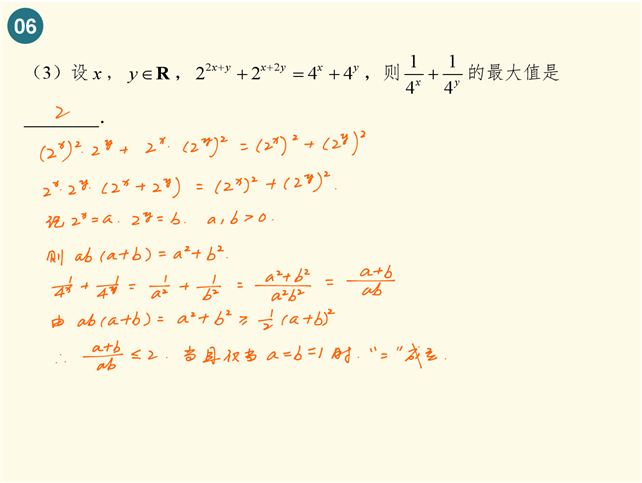 06
（3）设 x，y∈R，2^{2x+y}+2^{x+2y}=4^x+4^y，则 1/4^x + 1/4^y 的最大值是
2 .
(2^x)^2·2^y + 2^x·(2^y)^2 = (2^x)^2 + (2^y)^2
2^x·2^y·(2^x+2^y) = (2^x)^2+(2^y)^2.
记 2^x=a. 2^y=b. a,b>0.
则 ab(a+b)=a²+b².
1/4^x + 1/4^y = 1/a² + 1/b² = (a²+b²)/(a²b²) = (a+b)/(ab)
由 ab(a+b)= a²+b² ≥ 1/2 (a+b)²
∴ (a+b)/(ab) ≤ 2. 当且仅当 a=b=1时. “=”成立.